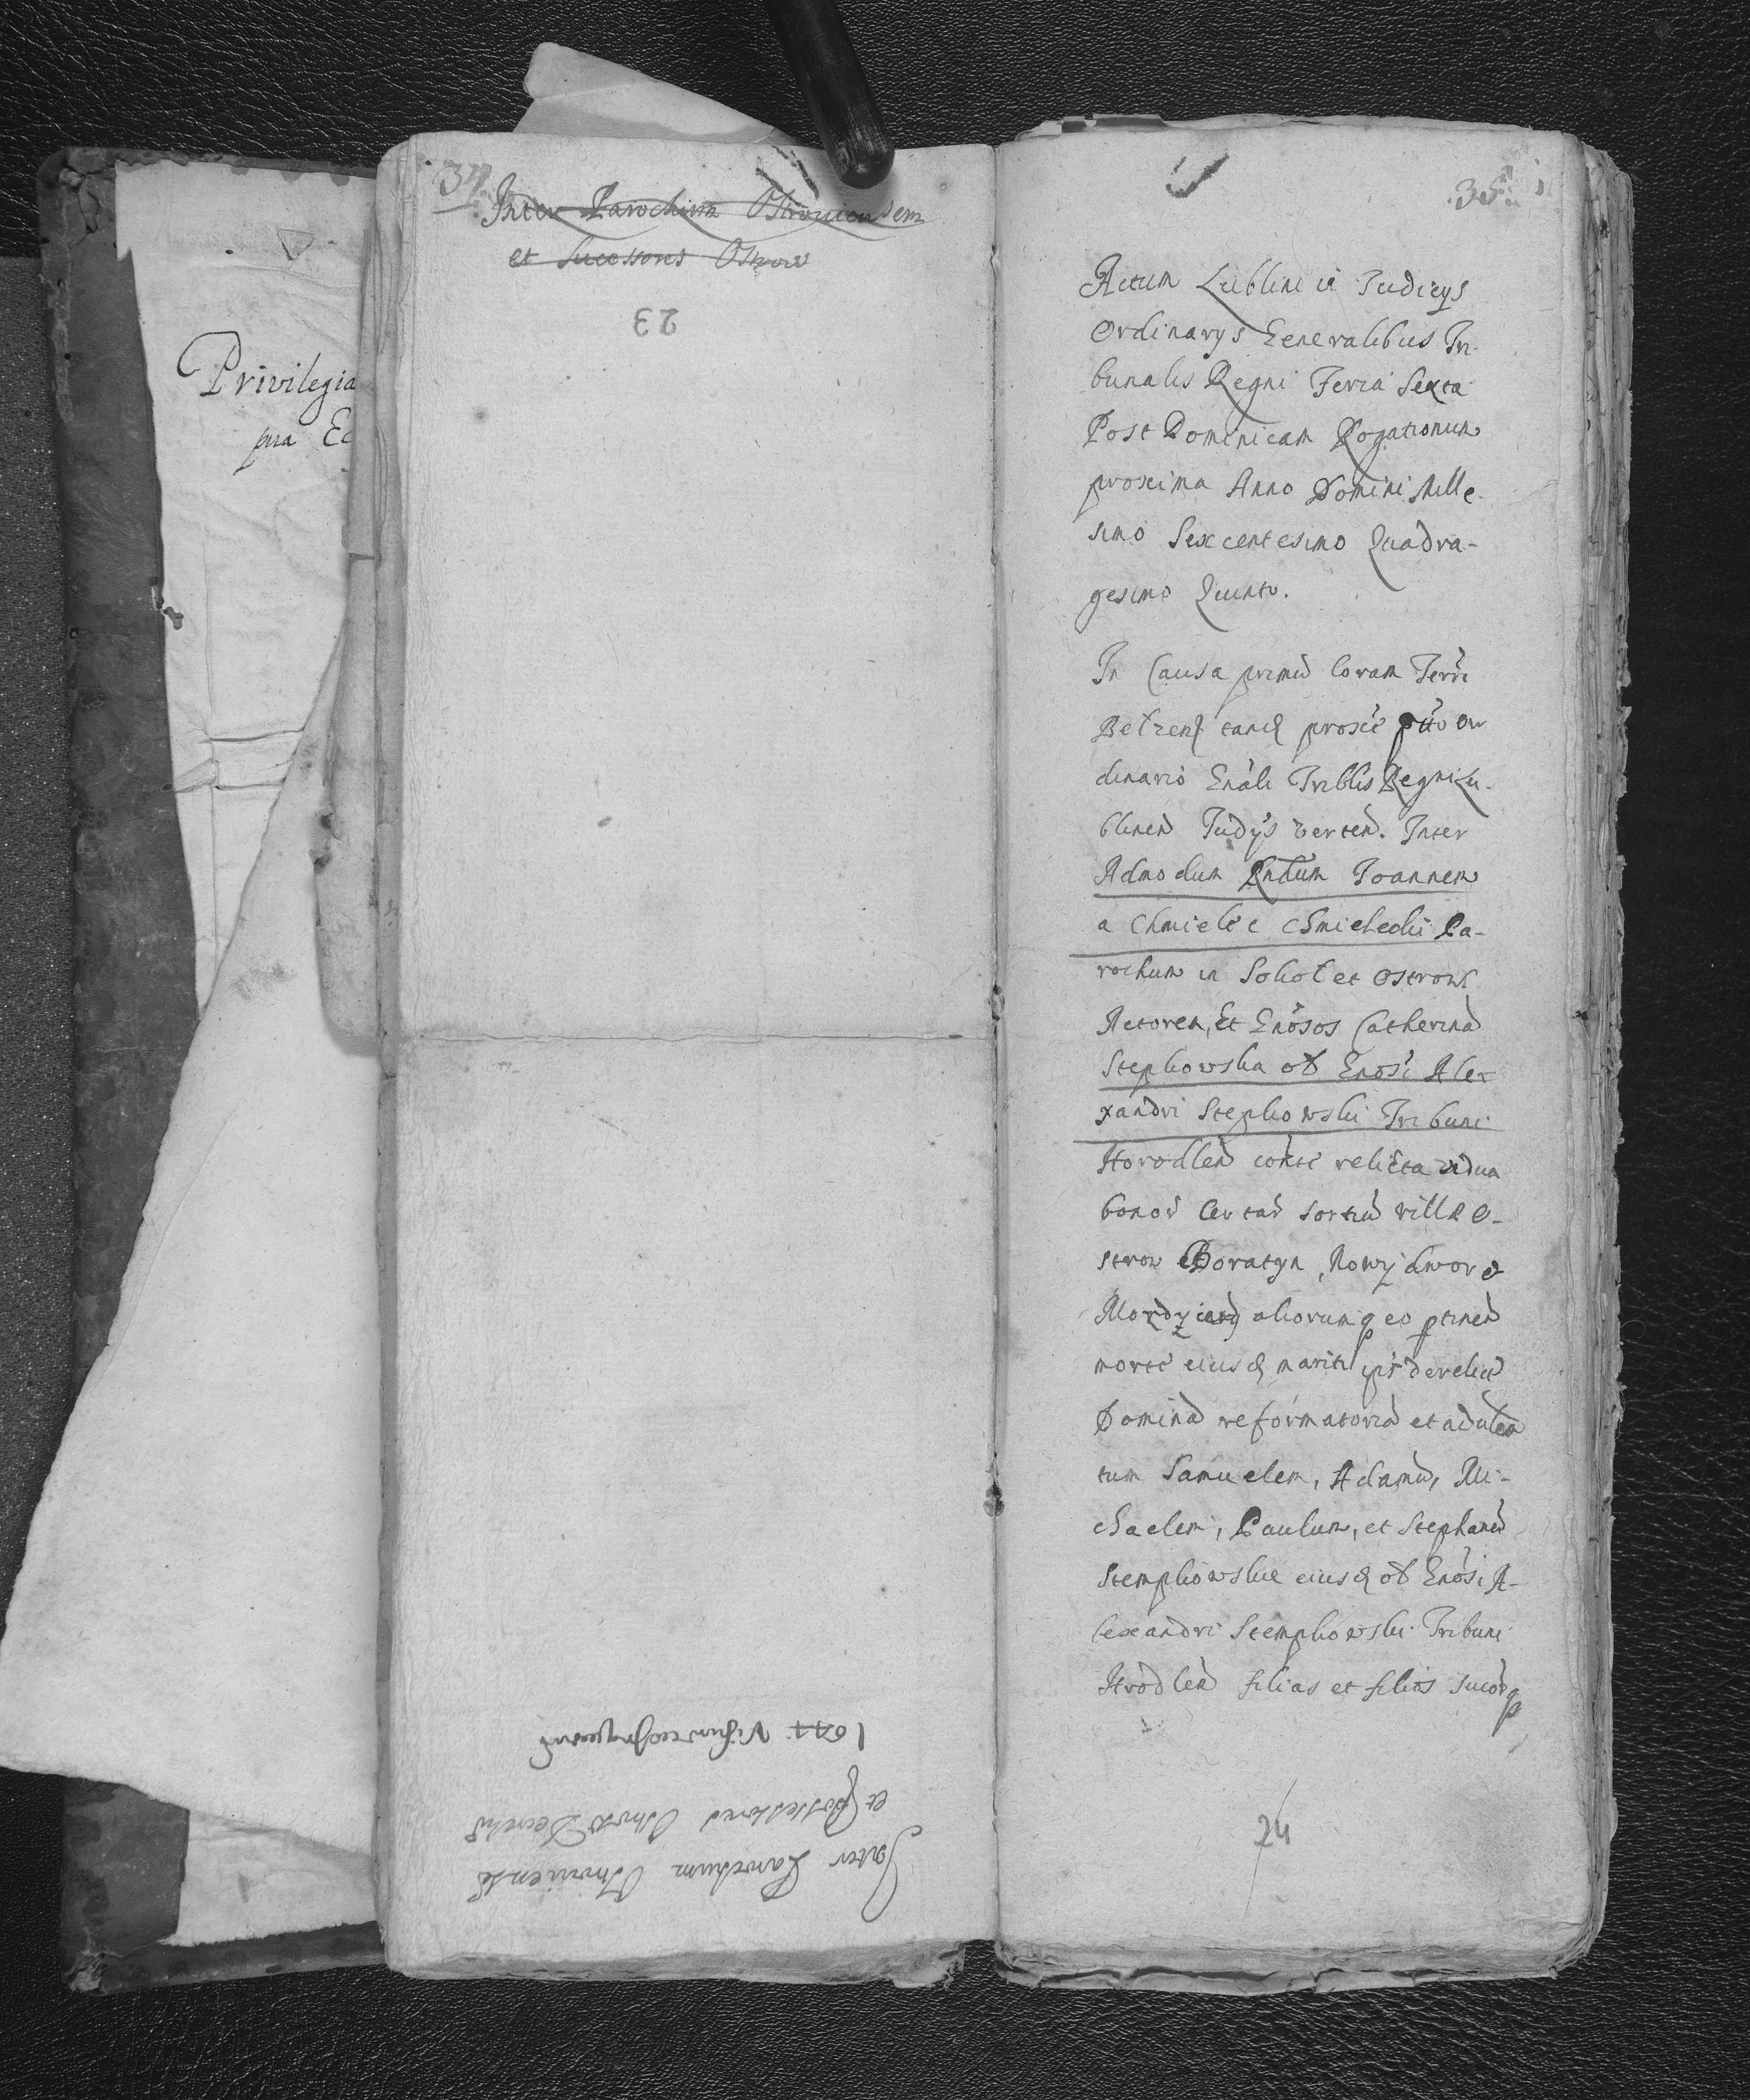 Privilegia
pra Ec
34
Inter Parochum Ostroviensem
et Sucessores Ostrow
23
Inter Parochum Ostroviens
et Possessores Ostrow Decret
1644
35
Actum Lublini in Judicÿs
Ordinarÿs Generalibus Tri-
bunalis Regni Feria Sexta
Post Dominicam Rogationum
proxima Anno Domini Mille-
simo Sexcentesimo Quadra-
gesimo Quinto.
In Causa primū Coram Terri
Belzen tand proxie ptto or
dinario Gnali Triblis Regni Lu-
blinen Judÿs verten. Inter
Admodum Rndum Joannem
a Chmielec Chmielecki Pa-
rochum in Sokol et Ostrow
Actorem, Et Gnosos Catherina
Stepkowska olt Gnosi Ale-
xandri Stepkowski Tribuni
Horodlen conte relicta vidua
bonor certar sortiu villæ O-
strow Boratyn, Nowy dwor &
aliorumq eo ptinen
morte eiusd mariti derelict
Domina reformatoria et
tum Samuelem, Adamū, Mi-
chaelem, Paulum, et Stephanū
Stempkowskie eiusd olt Gnosi A-
lexandri Stempkowski Tribuni
Hrodlen filias et filios sucorq
24